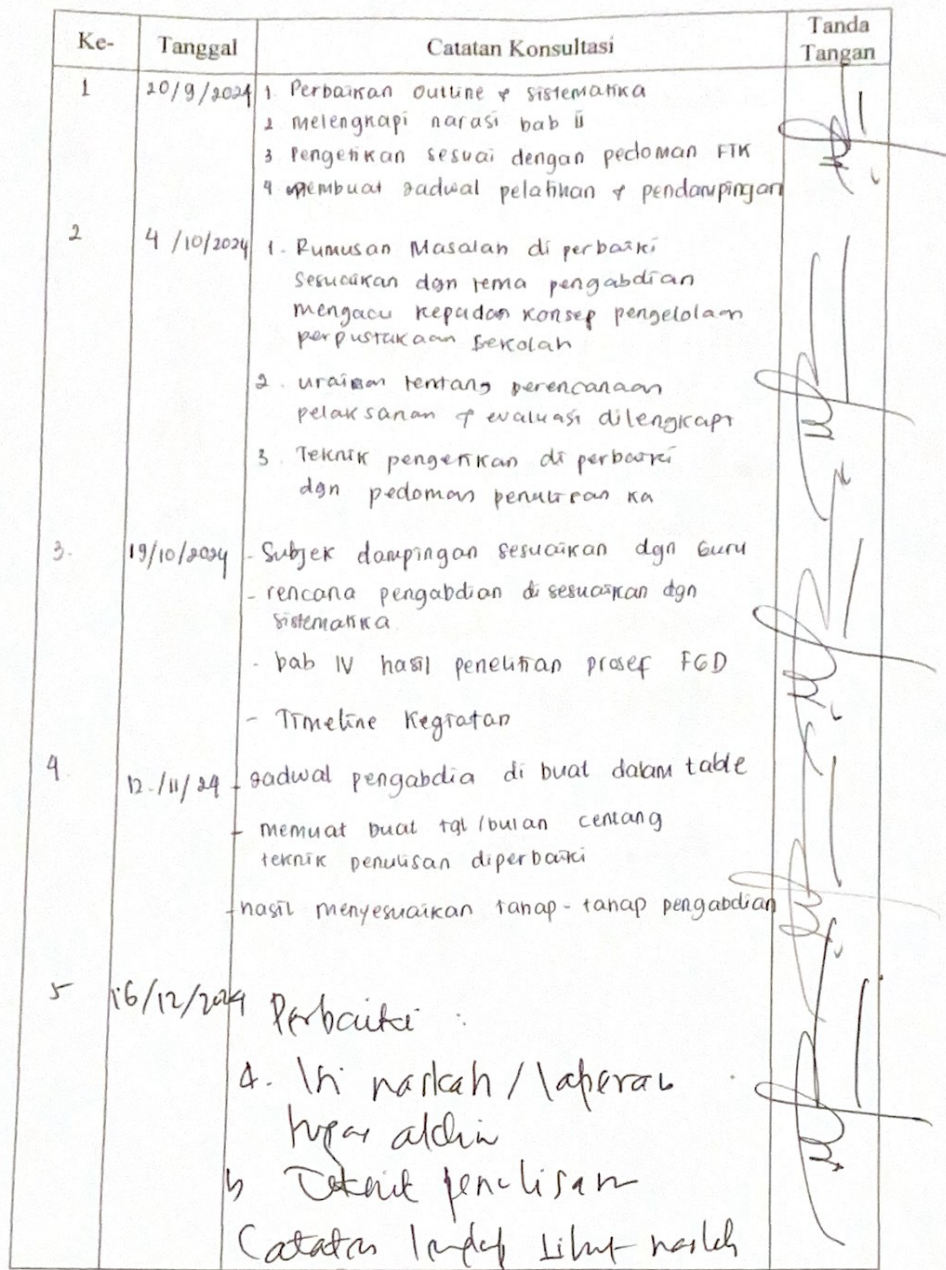 Ke- Tanggal Catatan Konsultasi Tanda Tangan
1 20/9/2024 1. Perbaikan Outline & Sistematika
2 melengkapi narasi bab ii
3 Pengetikan sesuai dengan pedoman FTK
4 membuat Jadwal pelatihan & pendampingan
2 4/10/2024 1. Rumusan Masalah di perbaiki
Sesuaikan dgn tema pengabdian
mengacu kepadan konsep pengelolaan
perpustakaan Sekolah
2. uraian tentang perencanaan
pelaksanan & evaluasi dilengkapi
3. Teknik pengetikan di perbaiki
dgn pedoman penulisan KA
3. 19/10/2024 - Subjek dampingan sesuaikan dgn Guru
- rencana pengabdian di sesuaikan dgn
sistematika
- bab IV hasil penelitian FGD
- Timeline Kegiatan
4. 12/11/24 - Jadwal pengabdia di buat dalam table
- memuat buat tgl/bulan centang
teknik penulisan diperbaiki
- hasil menyesuaikan tahap-tahap pengabdian
5 16/12/2024 Perbaiki :
a. Isi naskah/laporan
tugas akhir
b Teknik penulisan
Catatan naskah